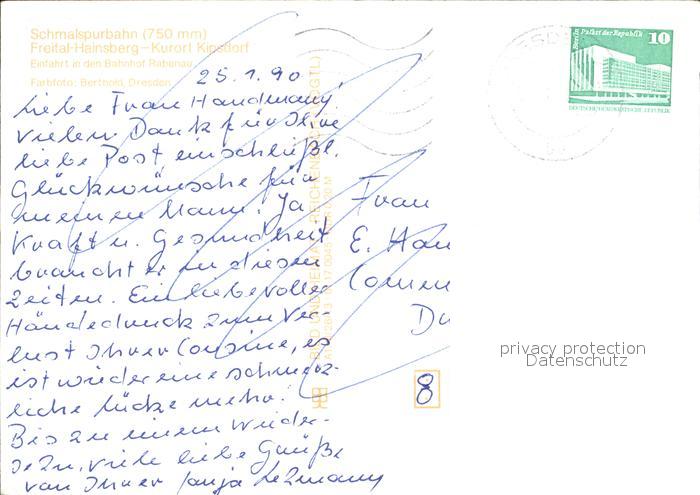 Schmalspurbahn (750 mm)
Freital-Hainsberg – Kurort Kipsdorf
Einfahrt in den Bahnhof Rabenau
Farbfoto: Berthold, Dresden
25.1.90
Liebe Frau Handmann,
vielen Dank für Ihre
liebe Post, einschließl.
Glückwünsche für
meinen Mann. Ja,
Kraft u. Gesundheit
braucht er in diesen
Zeiten. Ein liebevoller
Händedruck zum Ver-
lust Ihrer Cousine, es
ist wieder eine schmerz-
liche Lücke mehr.
Bis zu einem Wieder-
sehn, viele liebe Grüße
von Ihrer
Frau
E. Han
Du
8
Berlin, Palast der Republik
10
DEUTSCHE DEMOKRATISCHE REPUBLIK
privacy protection
Datenschutz